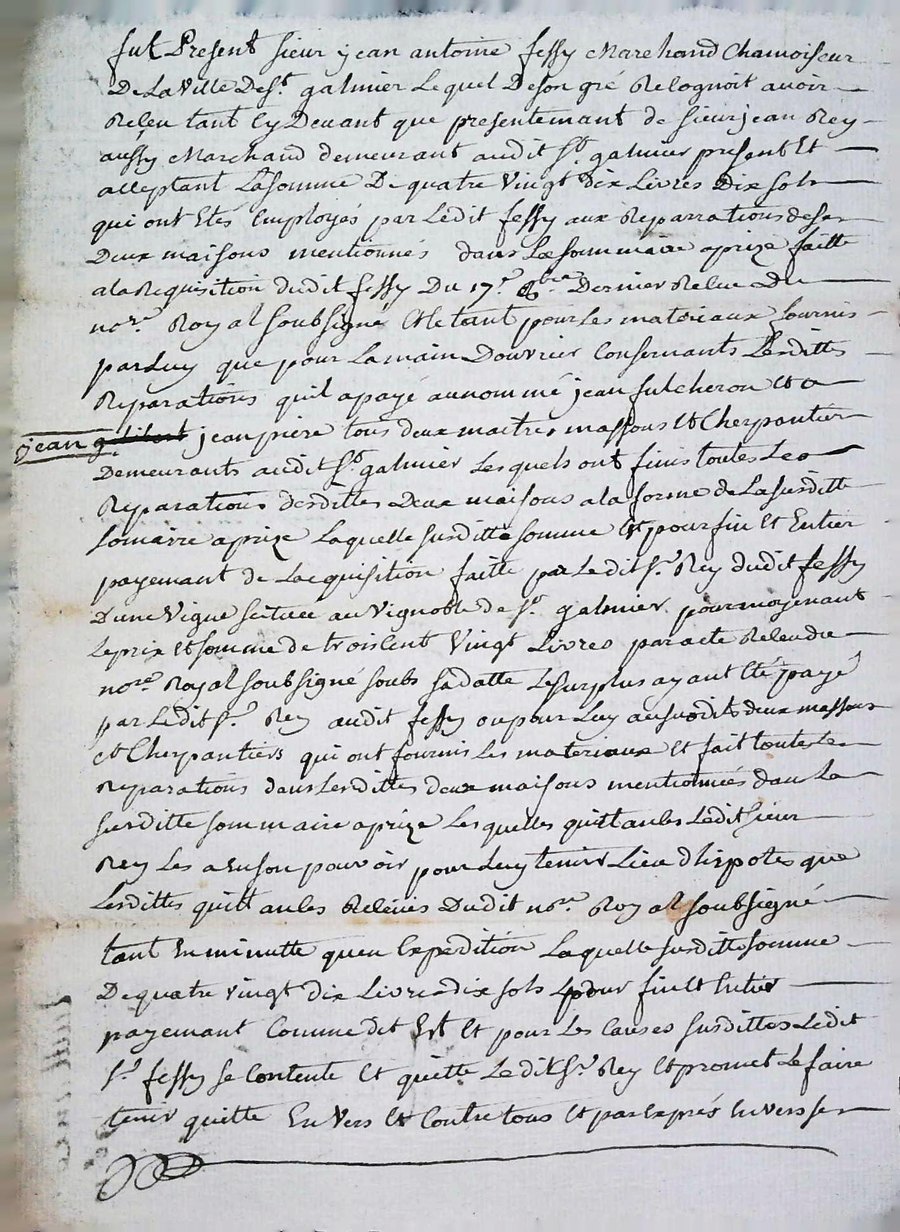 fut Present sieur jean antoine fessy Marchand Chamoiseur
De La Ville De st. galmier Lequel De son gré Recognoit avoir
Receu tant Cy Devant que presentemant de sieur jean Rey
aussy Marchand demeurant audit st. galmier present Et
acceptant La somme De quatre Vingt dix Livres Dix sols
qui ont Etés Employés par Ledit fessy aux Reparrations de ses
Deux maisons mentionnés dans La sommaire aprize faitte
ala Requisition dudit fessy Du 17e. 8bre. Dernier Receue Du
nore. Royal soubsigné Et ce tant pour Les materiaux fournis
par Luy que pour La main Douvrier Consernants Lesdittes
Reparations quil a payé au nommé jean fulcheron et a
jean jean piere tous deux maitres massons Et Cherpantier
Demeurants audit st. galmier Lesquels ont finis toutes Les
Reparations desdittes Deux maisons ala forme de La susditte
somairre aprize Laquelle susditte somme Et pour fin Et Entier
payemant de Lacquisition faitte par Ledit sr. Rey dudit fessy
Dune Vigne scituée au Vignoble de st. galmier pour moyenant
Le prix Et somme de trois Cent Vingt Livres par acte Receu du
nore. Royal soubsigné soubs sa datte Le surplus ayant Eté payé
par Ledit sr. Rey audit fessy ou pour Luy ausdits deux massons
et Cherpantiers qui ont fournis Les materiaux Et fait toutes Les
Reparations dans Lesdittes deux maisons mentionnées dans La
susditte sommaire aprize Lesquelles quittances Ledit sieur
Rey Les a En son pouvoir pour Luy tenir Lieu d'hipoteque
Lesdittes quittances Receües Dudit nore. Royal soubsigné
tant En minutte qu'en Expedition Laquelle susditte somme
De quatre vingt dix Livres dix sols pour fin Et Entier
payemant Comme dit Est Et pour Les Causes susdittes Ledit
sr. fessy se Contente Et quitte Ledit sr. Rey Et promet Le faire
tenir quitte En Vers Et Contre tous Et par Exprés Envers ses